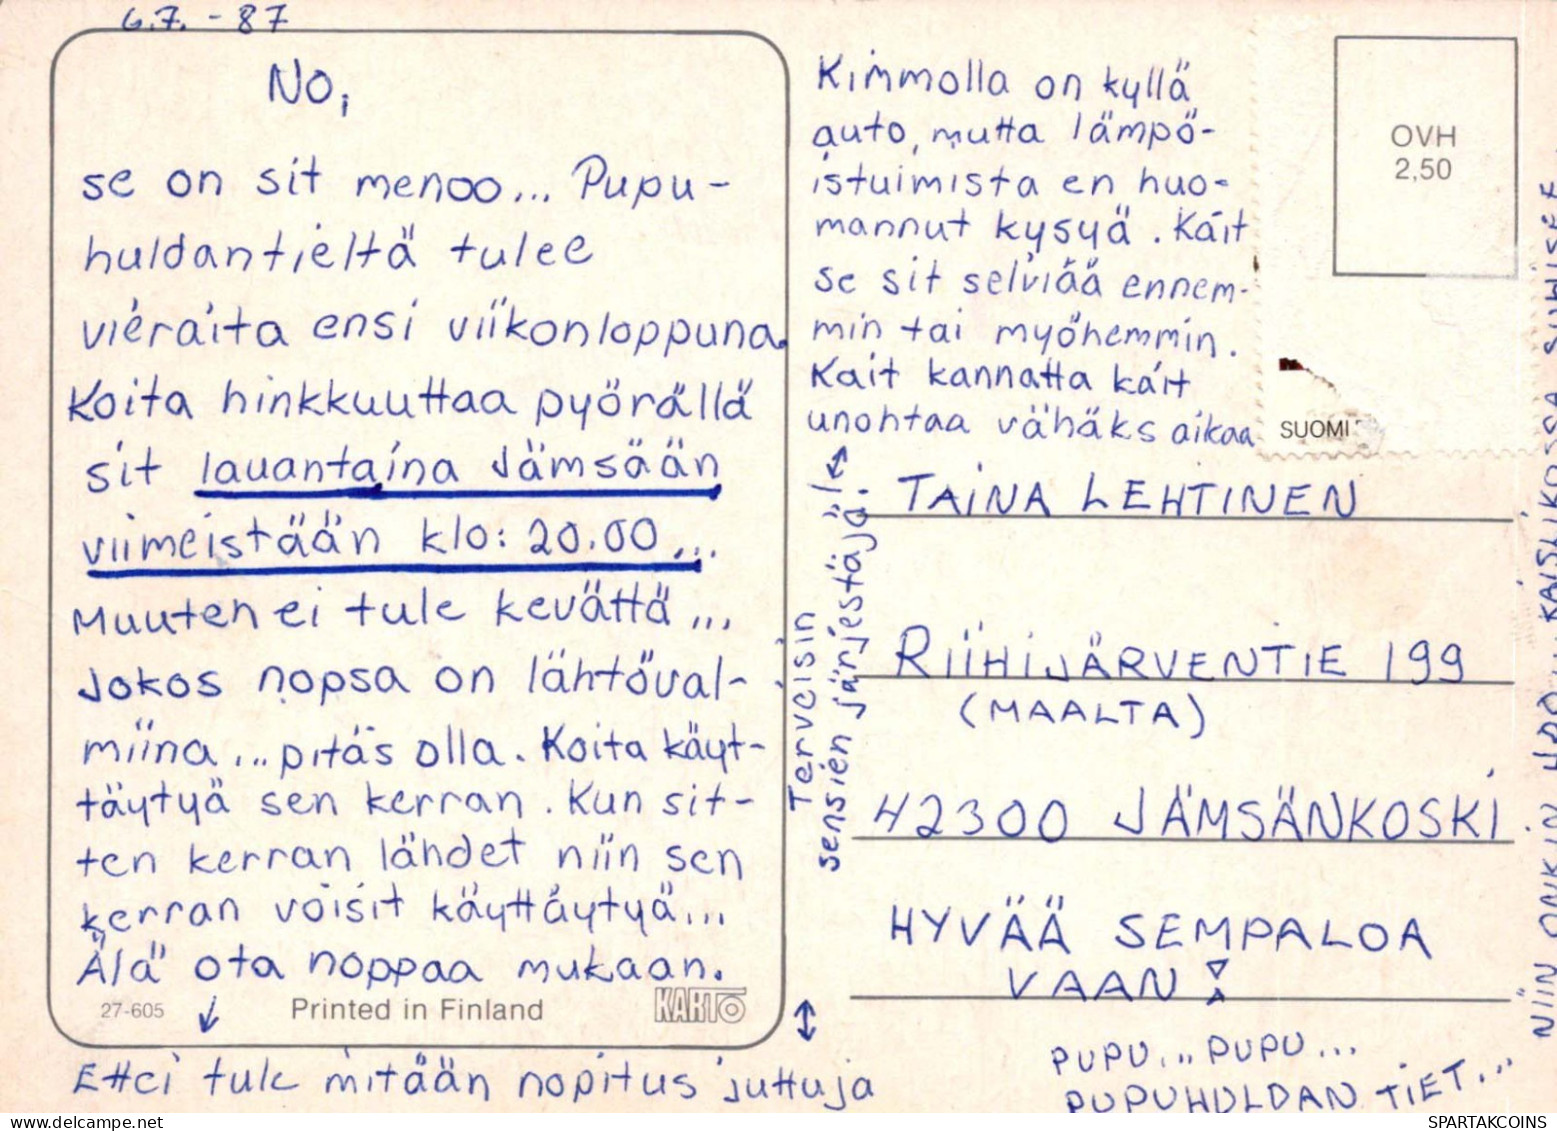 6.7. - 87
No,
se on sit menoo... Pupu-
huldantieltä tulee
vieraita ensi viikonloppuna.
Koita hinkkuuttaa pyörällä
sit lauantaina Jämsään
viimeistään klo: 20.00...
Muuten ei tule kevättä...
Jokos nopsa on lähtöval-
miina... pitäs olla. Koita käyt-
täytyä sen kerran. Kun sit-
ten kerran lähdet niin sen
kerran voisit käyttäytyä...
Älä ota noppaa mukaan.
27-605 Printed in Finland KARTO
Ettei tule mitään nopitus juttuja
Kimmolla on kyllä
auto, mutta lämpö-
istuimista en huo-
mannut kysyä. Käit
se sit selviää ennem-
min tai myöhemmin.
Kait kannatta käit
unohtaa vähäks aikaa
Terveisin
sensien järjestäjä!
OVH
2,50
SUOMI
TAINA LEHTINEN
RIIHIJÄRVENTIE 199
(MAALTA)
42300 JÄMSÄNKOSKI
HYVÄÄ SEMPALOA
VAAN!
PUPU... PUPU...
PUPUHULDAN TIET...
NIIN ONKIN KAISLIKOSSA SUHISEE
SPARTAKCOINS